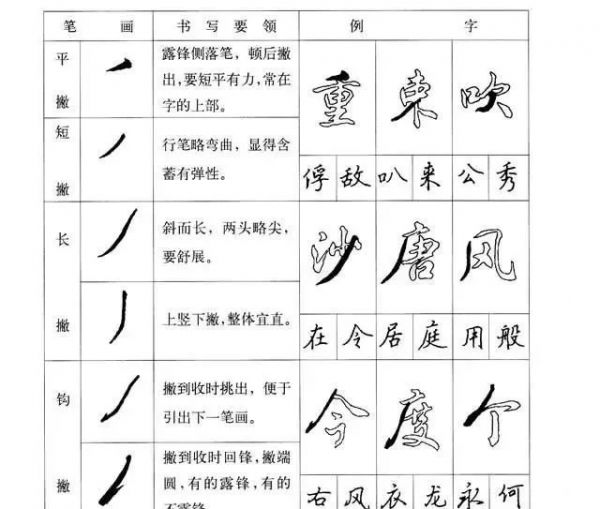 笔 画 书写要领 例 字
平撇
露锋侧落笔，顿后撇
出，要短平有力，常在
字的上部。
重 束 吹
短撇
行笔略弯曲，显得含
蓄有弹性。
俘 敌 叭 来 公 秀
长撇
斜而长，两头略尖，
要舒展。
沙 唐 风
上竖下撇，整体宜直。
在 令 居 庭 用 般
钩撇
撇到收时挑出，便于
引出下一笔画。
今 度 个
撇到收时回锋，撇端
圆，有的露锋，有的
不露锋
右 风 衣 龙 永 何